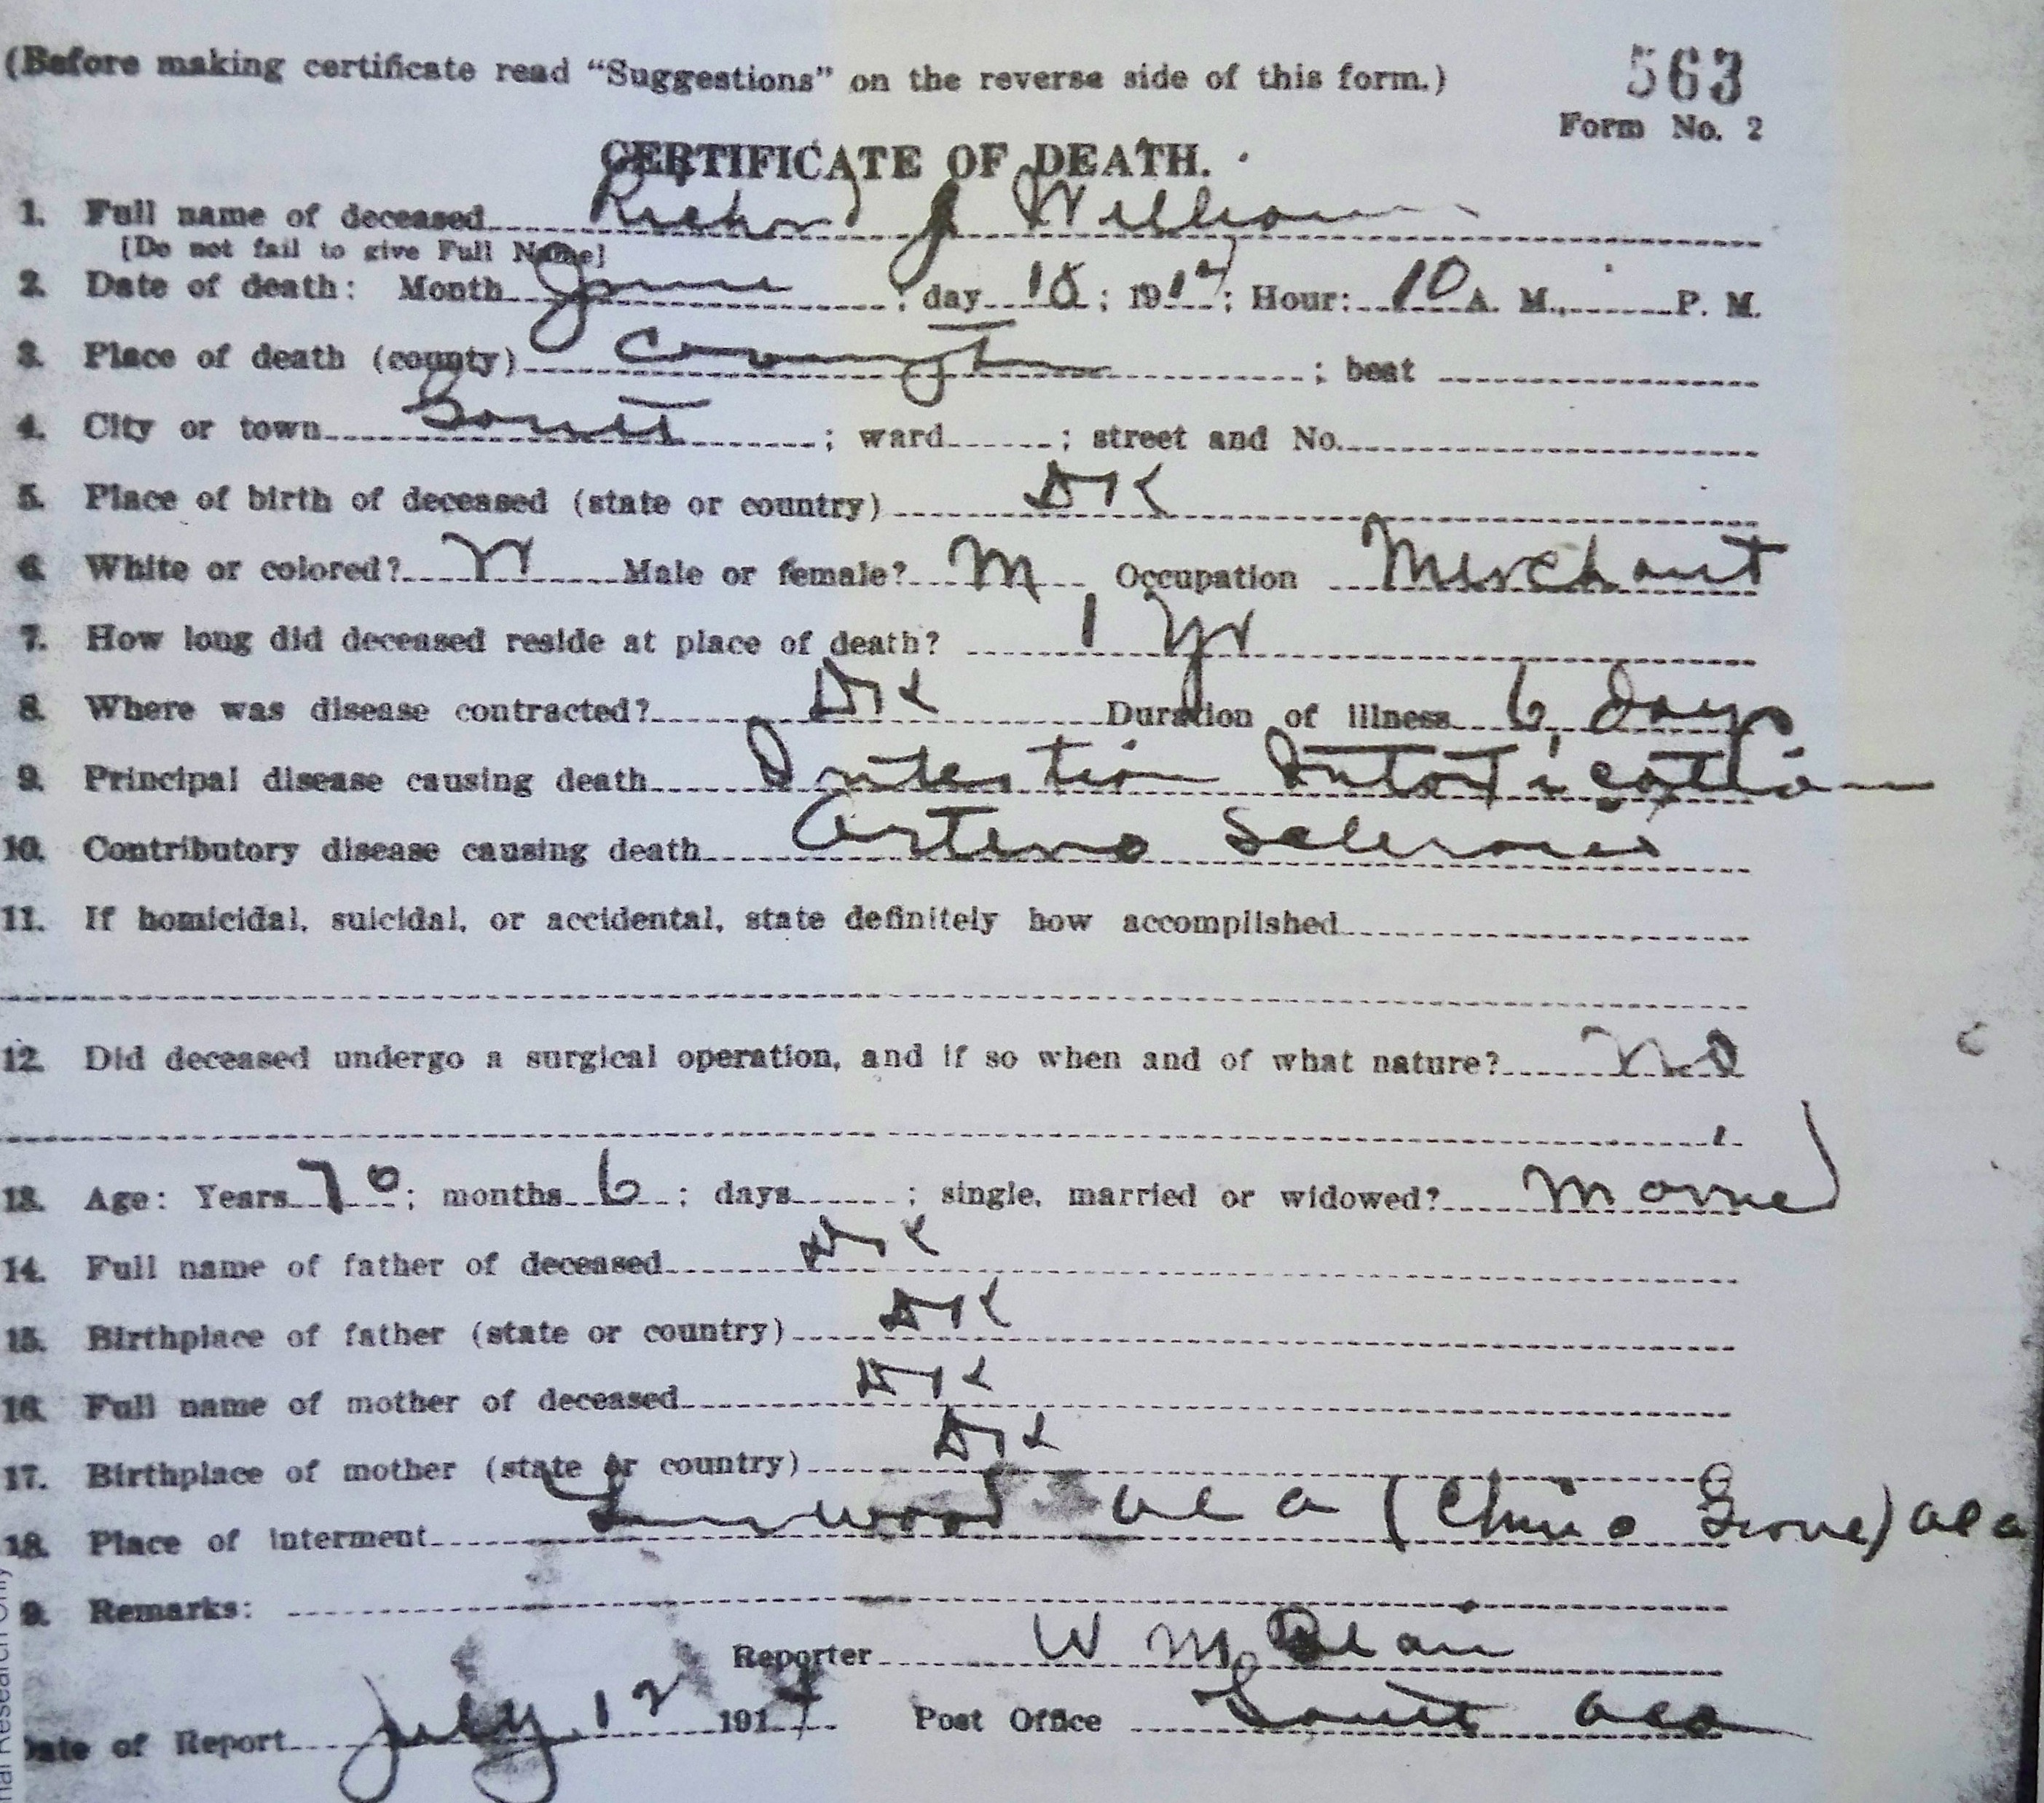 (Before making certificate read "Suggestions" on the reverse side of this form.) 563
Form No. 2
CERTIFICATE OF DEATH.
1. Full name of deceased J William
[Do not fail to give Full Name]
2. Date of death: Month June ; day 18 ; 1917 ; Hour: 10 A. M., P. M.
3. Place of death (county) Covington ; beat
4. City or town ; ward ; street and No.
5. Place of birth of deceased (state or country) DK
6. White or colored? W Male or female? M Occupation Merchant
7. How long did deceased reside at place of death? 1 yr
8. Where was disease contracted? DK Duration of illness 6 days
9. Principal disease causing death Intestion Intoxication
10. Contributory disease causing death Arterio Sclerosis
11. If homicidal, suicidal, or accidental, state definitely how accomplished
12. Did deceased undergo a surgical operation, and if so when and of what nature? no
13. Age: Years 70 ; months 6 ; days ; single, married or widowed? married
14. Full name of father of deceased DK
15. Birthplace of father (state or country) DK
16. Full name of mother of deceased DK
17. Birthplace of mother (state or country) DK
18. Place of interment Linwood ala (China Grove) ala
9. Remarks:
Reporter W M
Date of Report July 12 1917 Post Office ala